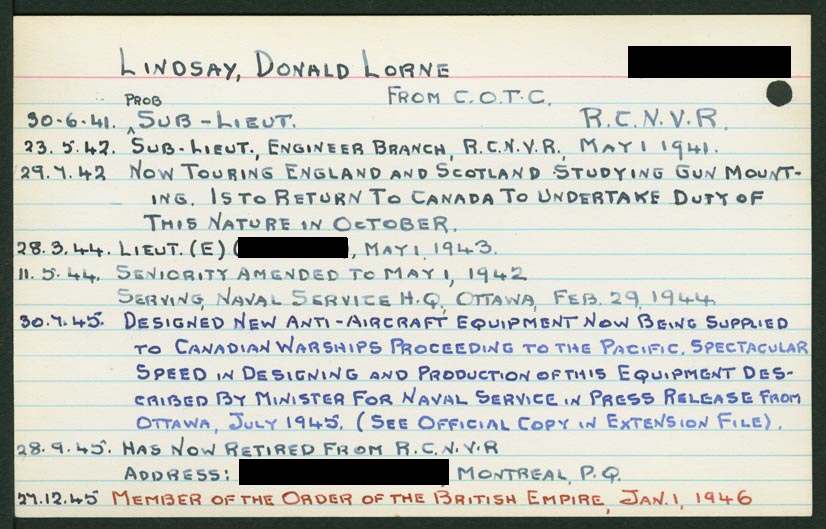 LINDSAY, DONALD LORNE
FROM C.O.T.C.
30-6-41. PROB SUB-LIEUT. R.C.N.V.R.
23.5.42. SUB-LIEUT., ENGINEER BRANCH, R.C.N.V.R., MAY 1 1941.
29.7.42 NOW TOURING ENGLAND AND SCOTLAND STUDYING GUN MOUNT-
ING. IS TO RETURN TO CANADA TO UNDERTAKE DUTY OF
THIS NATURE IN OCTOBER.
28.3.44. LIEUT. (E) ( , MAY 1, 1943.
11.5.44. SENIORITY AMENDED TO MAY 1, 1942
SERVING, NAVAL SERVICE H.Q., OTTAWA, FEB. 29, 1944
30.7.45. DESIGNED NEW ANTI-AIRCRAFT EQUIPMENT NOW BEING SUPPLIED
TO CANADIAN WARSHIPS PROCEEDING TO THE PACIFIC. SPECTACULAR
SPEED IN DESIGNING AND PRODUCTION OF THIS EQUIPMENT DES-
CRIBED BY MINISTER FOR NAVAL SERVICE IN PRESS RELEASE FROM
OTTAWA, JULY 1945. (SEE OFFICIAL COPY IN EXTENSION FILE).
28.9.45. HAS NOW RETIRED FROM R.C.N.V.R
ADDRESS: , MONTREAL, P.Q.
27.12.45 MEMBER OF THE ORDER OF THE BRITISH EMPIRE, JAN. 1, 1946